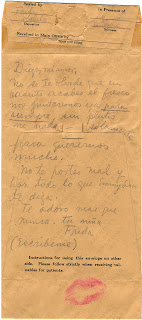 in Presence of
Received in Main Office by
Diego, mi amor,
No se te olvide que en
cuanto acabes el fresco
nos juntaremos ya para
siempre, sin pleitos
ni nada, solamente
para queremos
mucho.
No te portes mal y
haz todo lo que
te diga.
Te adoro mas que
nunca. Tu niña
Frida
(escribeme)
Instructions for using this envelope on other
side. Please follow strictly when receiving val-
uables for patients.